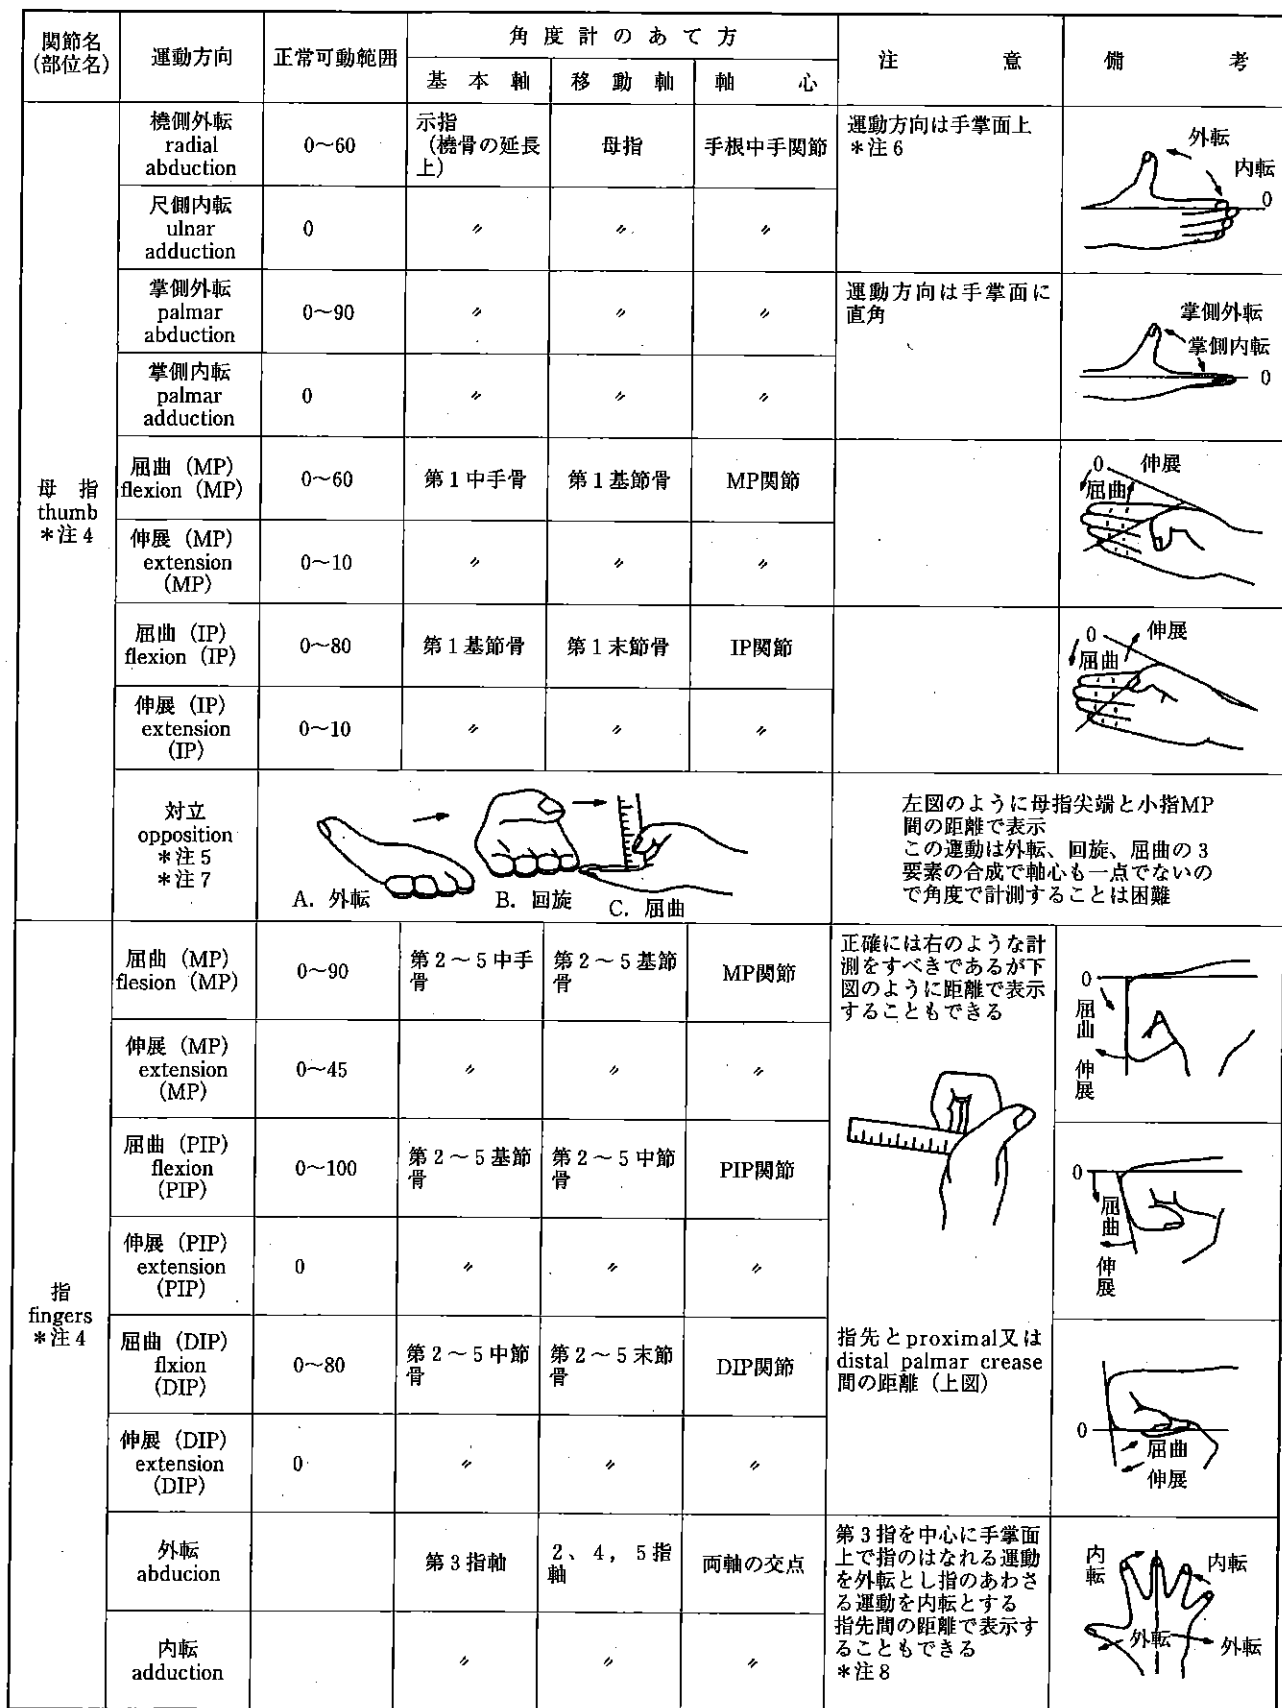 関節名
(部位名)
運動方向
正常可動範囲
角度計のあて方
基本軸
移動軸
軸心
注意
備考
母指
thumb
*注4
橈側外転
radial
abduction
0〜60
示指
(橈骨の延長
上)
母指
手根中手関節
運動方向は手掌面上
*注6
外転
内転
0
尺側内転
ulnar
adduction
0
〃
〃
〃
掌側外転
palmar
abduction
0〜90
〃
〃
〃
運動方向は手掌面に
直角
掌側外転
掌側内転
0
掌側内転
palmar
adduction
0
〃
〃
〃
屈曲 (MP)
flexion (MP)
0〜60
第1中手骨
第1基節骨
MP関節
0
伸展
屈曲
伸展 (MP)
extension
(MP)
0〜10
〃
〃
〃
屈曲 (IP)
flexion (IP)
0〜80
第1基節骨
第1末節骨
IP関節
0
伸展
屈曲
伸展 (IP)
extension
(IP)
0〜10
〃
〃
〃
対立
opposition
*注5
*注7
A. 外転
B. 回旋
C. 屈曲
左図のように母指尖端と小指MP
間の距離で表示
この運動は外転、回旋、屈曲の3
要素の合成で軸心も一点でないの
で角度で計測することは困難
指
fingers
*注4
屈曲 (MP)
flesion (MP)
0〜90
第2〜5中手
骨
第2〜5基節
骨
MP関節
正確には右のような計
測をすべきであるが下
図のように距離で表示
することもできる
0
屈曲
伸展
伸展 (MP)
extension
(MP)
0〜45
〃
〃
〃
屈曲 (PIP)
flexion
(PIP)
0〜100
第2〜5基節
骨
第2〜5中節
骨
PIP関節
0
屈曲
伸展
伸展 (PIP)
extension
(PIP)
0
〃
〃
〃
屈曲 (DIP)
flxion
(DIP)
0〜80
第2〜5中節
骨
第2〜5末節
骨
DIP関節
指先とproximal又は
distal palmar crease
間の距離 (上図)
0
屈曲
伸展
伸展 (DIP)
extension
(DIP)
0
〃
〃
〃
外転
abducion
第3指軸
2、4, 5指
軸
両軸の交点
第3指を中心に手掌面
上で指のはなれる運動
を外転とし指のあわさ
る運動を内転とする
指先間の距離で表示す
ることもできる
*注8
内転
内転
外転
外転
内転
adduction
〃
〃
〃